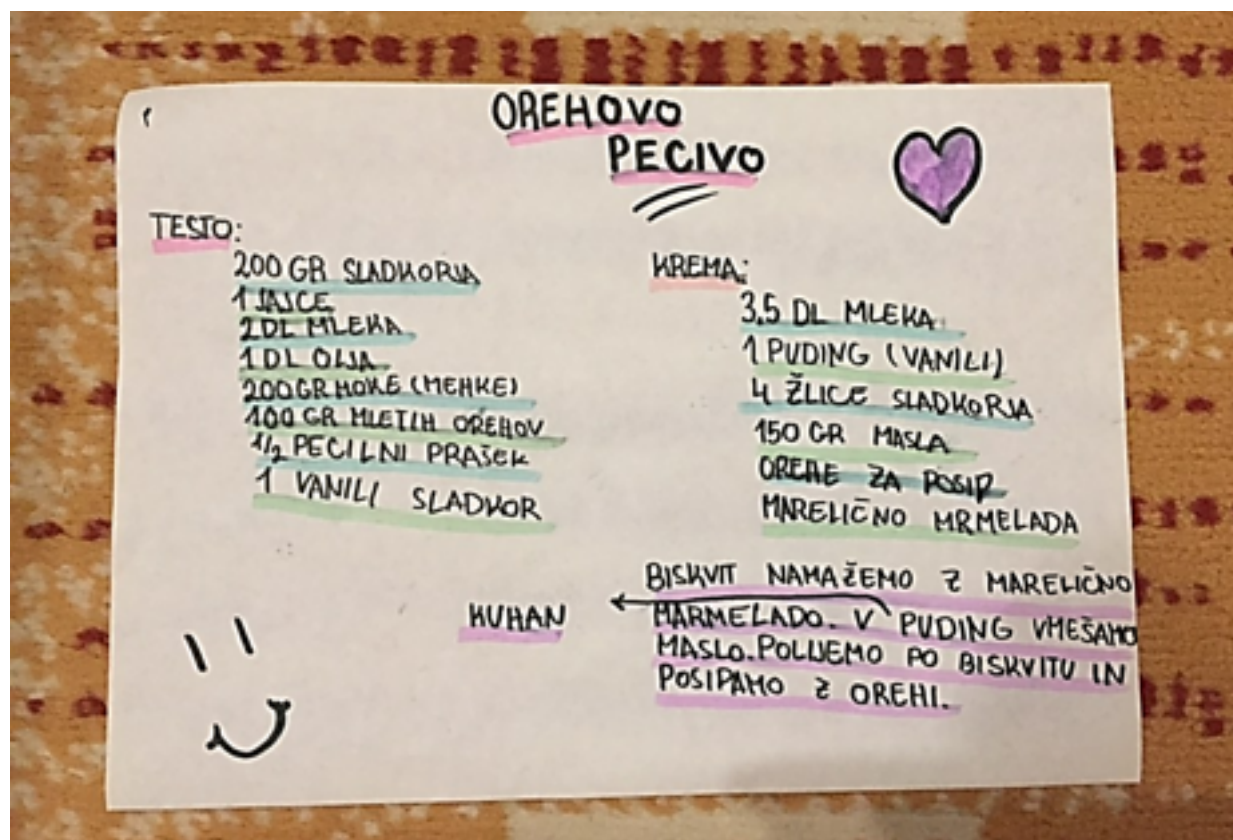 OREHOVO
PECIVO
TESTO:
200 GR SLADKORJA
1 JAJCE
2 DL MLEKA
1 DL OLJA
200 GR MOKE (MEHKE)
100 GR MLETIH OREHOV
1/2 PECILNI PRAŠEK
1 VANILI SLADKOR
KREMA:
3,5 DL MLEKA
1 PUDING (VANILI)
4 ŽLICE SLADKORJA
150 GR MASLA
OREHE ZA POSIP
MARELIČNO MRMELADA
BISKVIT NAMAŽEMO Z MARELIČNO
MARMELADO. V PUDING VMEŠAMO
MASLO. POLIJEMO PO BISKVITU IN
POSIPAMO Z OREHI.
KUHAN